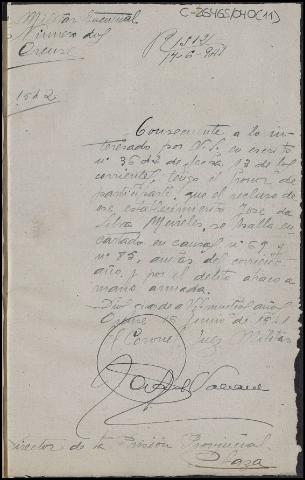 C-26465/040(11)
Militar Eventual
Número dos
Orense
1512
R 1812
Consecuente a lo in-
teresado por V.S. en escrito
nº de fecha 13 del
corriente, tengo el honor de
participarle, que el recluso de
ese establecimiento Jose da
Silva Meireles, se halla en-
cartado en causas nº 69 y
nº 85, ambas del corriente
año, y por el delito atraco a
mano armada.
Dios guarde a V.S. muchos años.
Orense 15 junio de 1941
El Coronel Juez Militar
Director de la Prisión Provincial.
Plaza